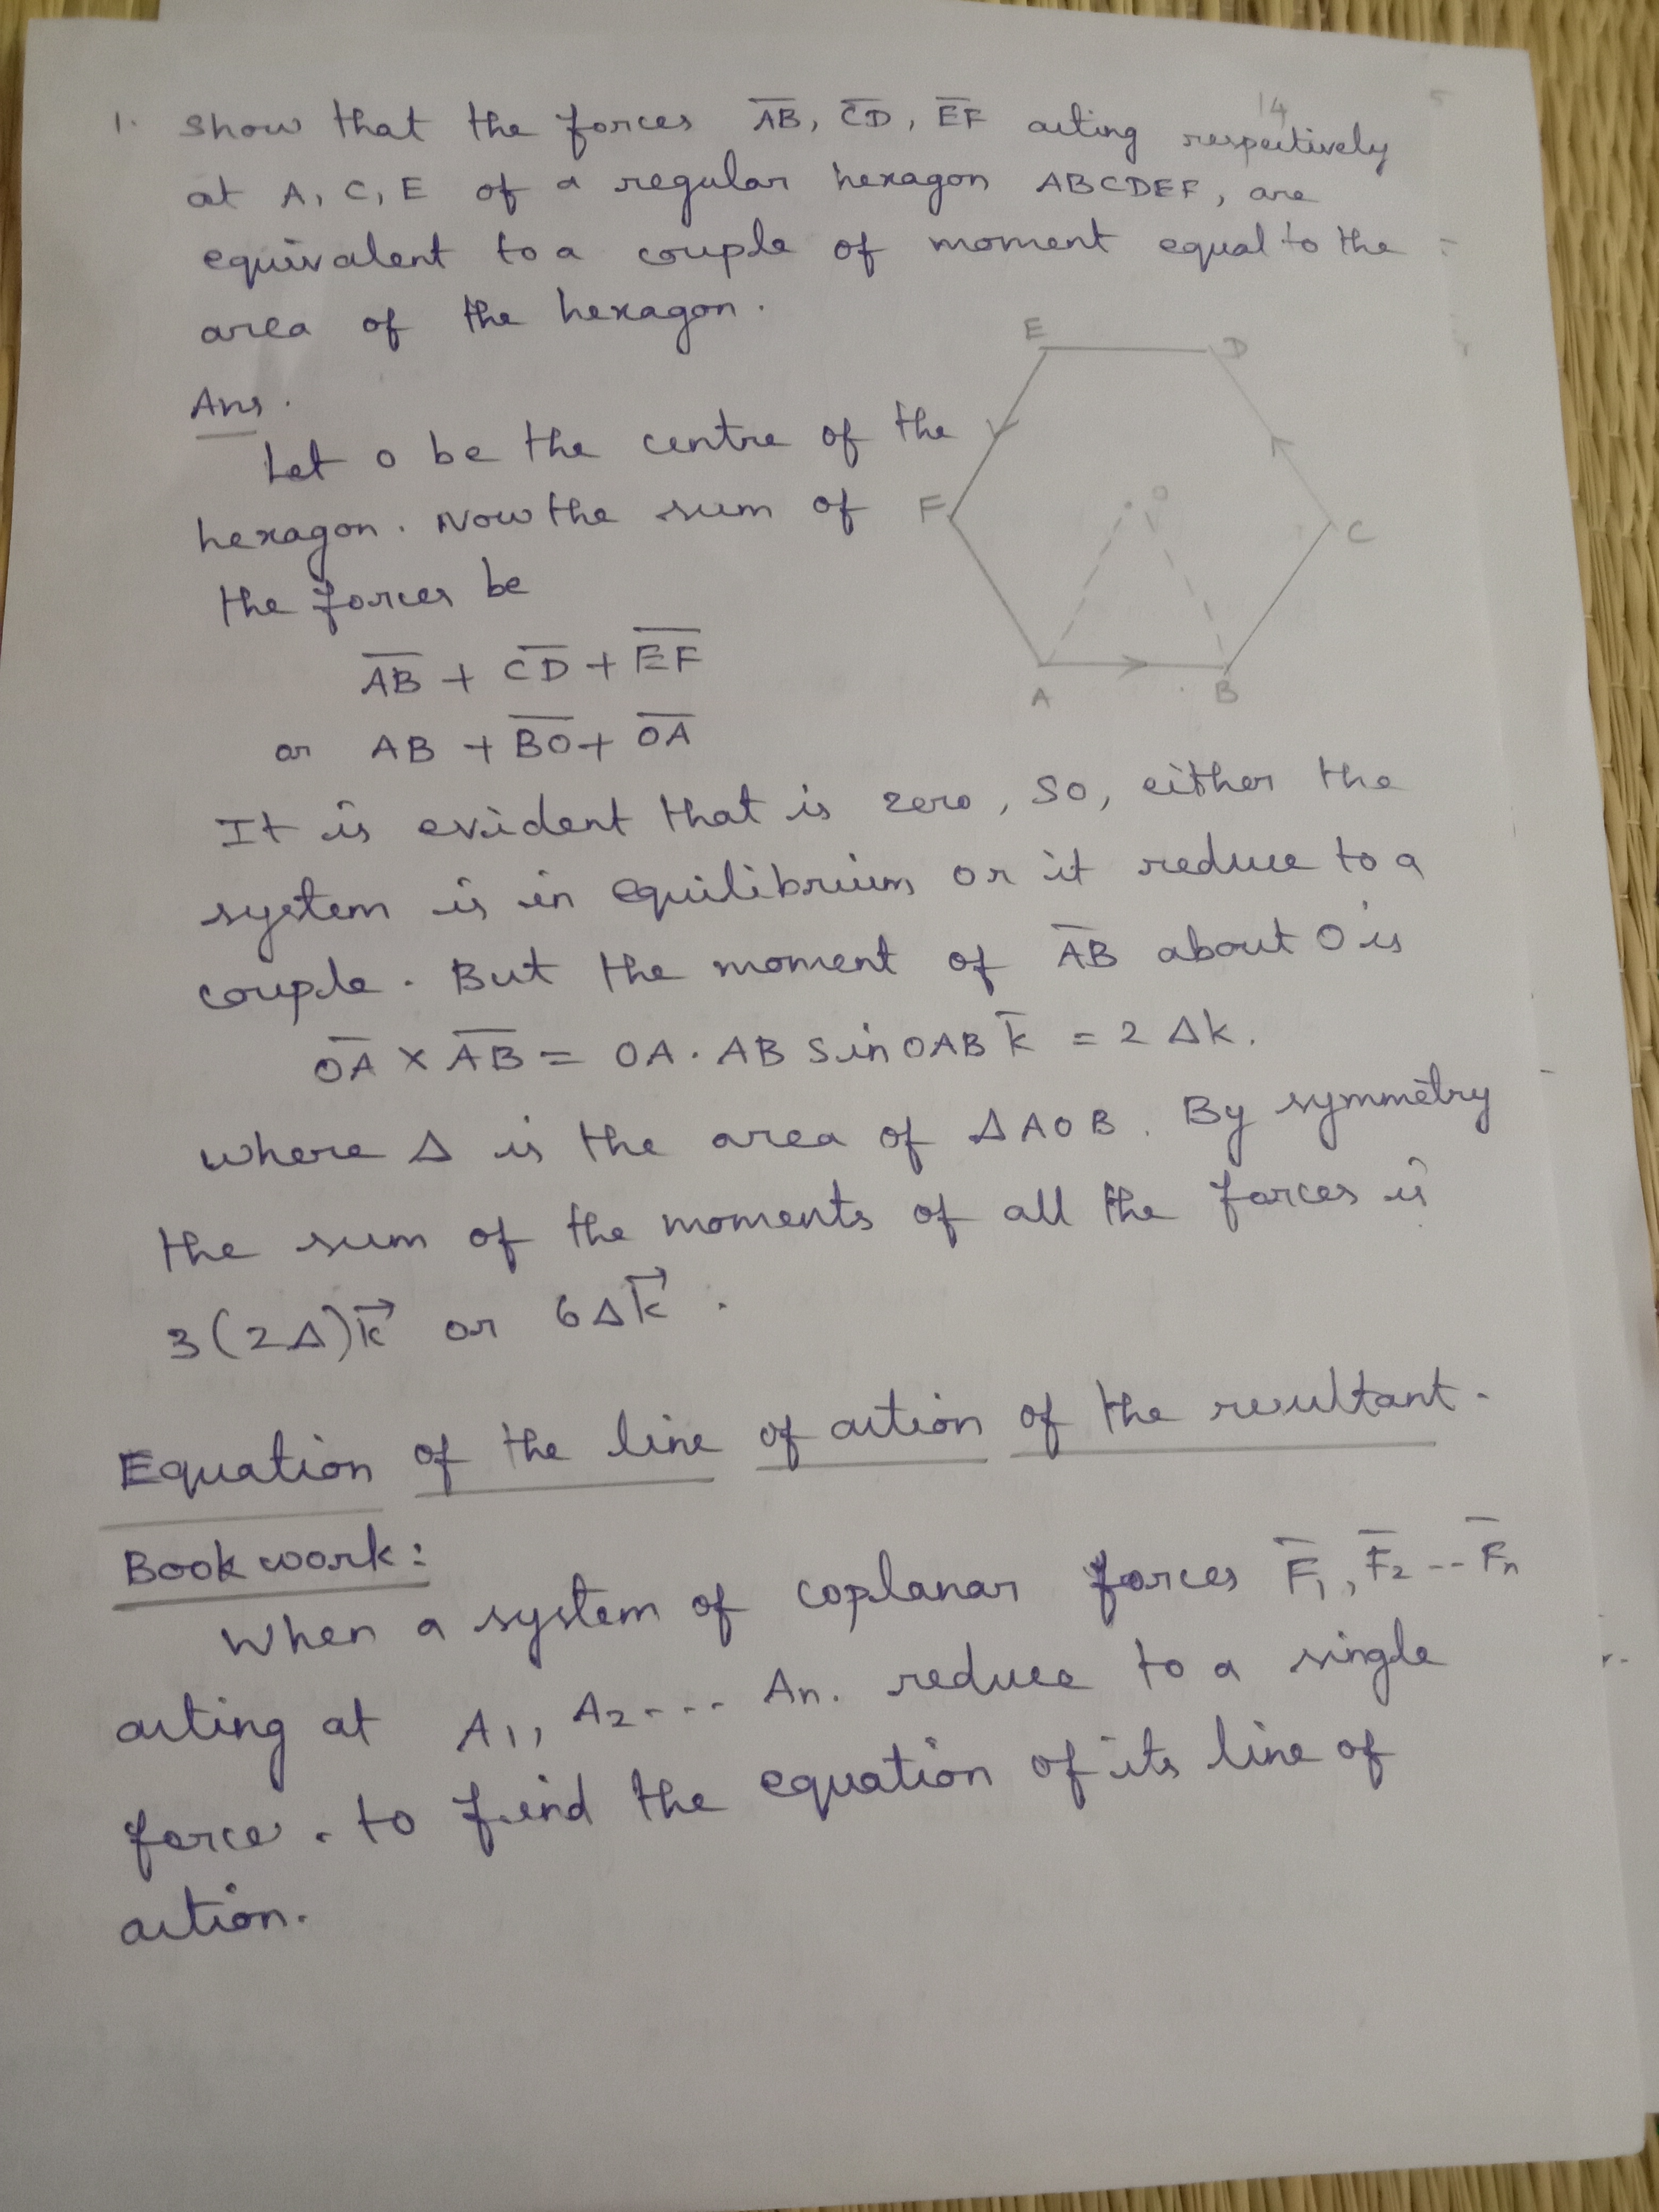 14
1. Show that the forces A̅B̅, C̅D̅, E̅F̅ acting respectively
at A, C, E of a regular hexagon ABCDEF, are
equivalent to a couple of moment equal to the
area of the hexagon.
Ans.
Let O be the centre of the
hexagon. Now the sum of
the forces be
A̅B̅ + C̅D̅ + E̅F̅
or AB + B̅O̅ + O̅A̅
E
D
F
O
C
A
B
It is evident that is zero, so, either the
system is in equilibrium or it reduce to a
couple. But the moment of A̅B̅ about O is
O̅A̅ × A̅B̅ = OA. AB Sin OAB k̅ = 2 Δk.
where Δ is the area of ΔAOB. By symmetry
the sum of the moments of all the forces is
3(2Δ)k⃗ or 6Δk⃗.
Equation of the line of action of the resultant.
Book work:
When a system of coplanar forces F̅₁, F̅₂ --- F̅n
acting at A₁, A₂---- An. reduce to a single
force. to find the equation of its line of
action.